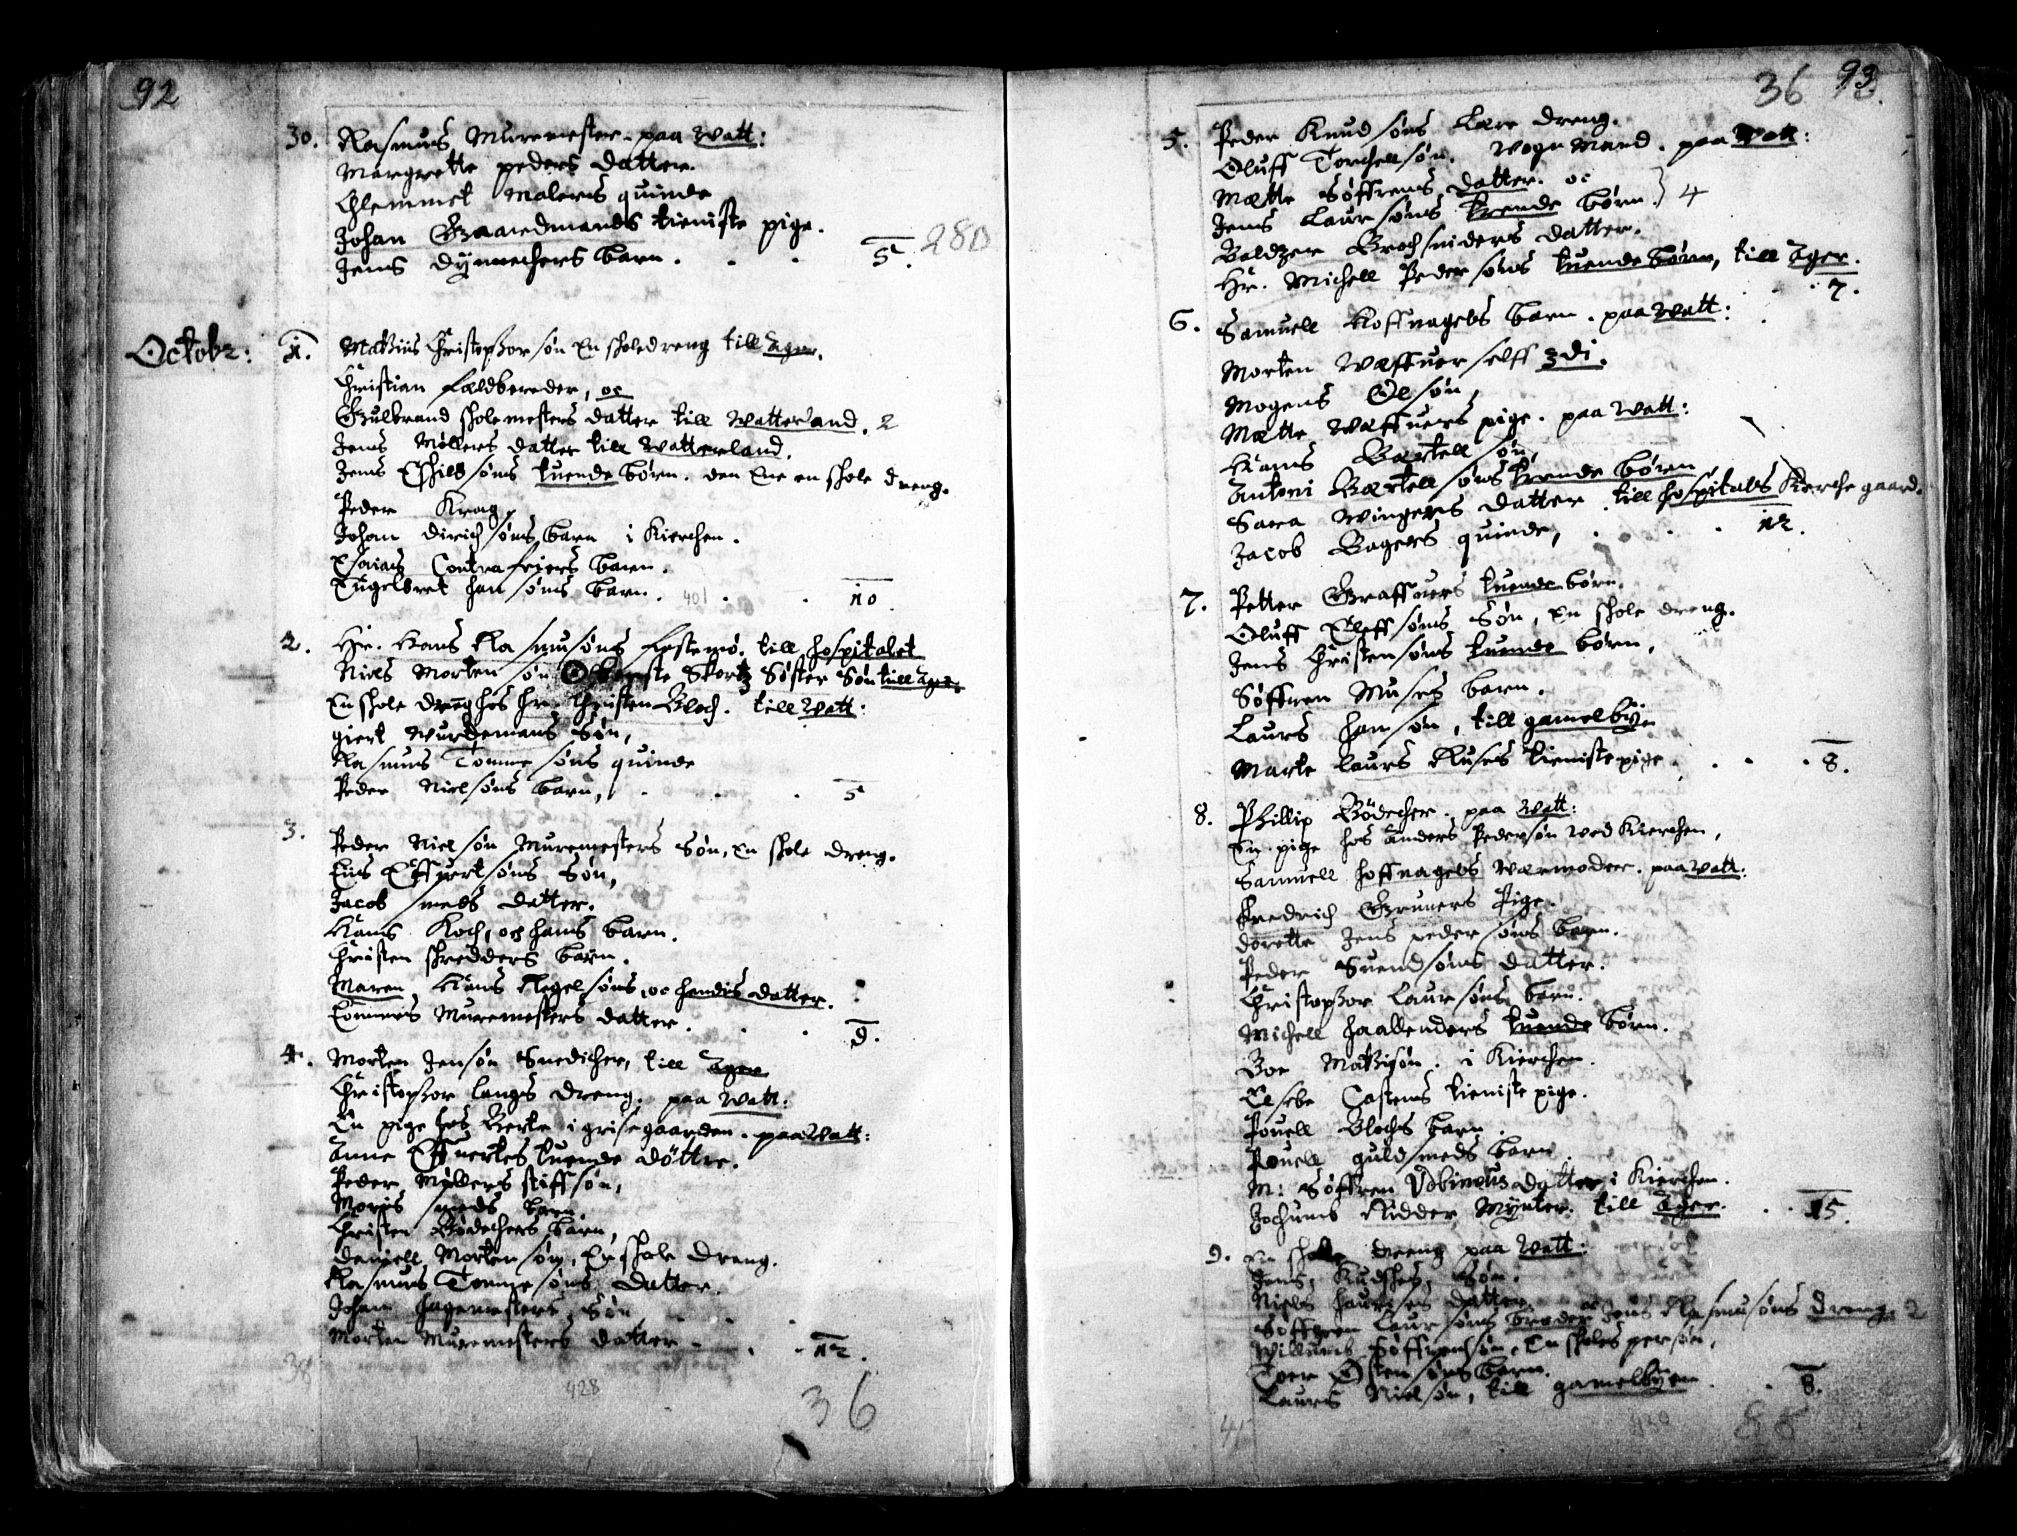 92
30. Rasmus Muremester. paa Watt:
Margrette peders datter.
Clemmet Malers quinde
Johan Gaardmands tieniste pige.
Jens dynnechers barn. 5. 280
Octobr: 1. Mathias Christophersøn En skoledreng till Ager.
Christian fældbereder, oc
Gulbrand skolemesters datter till Watterland. 2
Jens Møllers datter till Watterland.
Jens Eskilsøns tuende børn. den Ene en skole dreng.
Peder Krag
Johan dirichsøns barn i Kierchen.
Esaias Contrafeiers barn.
Engelbret hansøns barn. 401 10
2. Hr. Hans Rasmusøns festemø. till hospitalet
Niels Mortensøn Skortz Søster Søn till Ager.
En skole dreng hos Hr. Christen Bloch. till Watt:
giert Wurdemans Søn,
Rasmus Tommesøns quinde
Peder Nielsøns barn, 5
3. Peder Nielsøn Muremesters Søn, En skole dreng.
Søn,
Jacob smeds datter.
Hans Koch, och hans barn.
Christen skredders barn.
Maren Hans Regelsøns, oc hendis datter.
Tommes Muremesters datter. 9.
4. Morten Jensøn Snedicher, till Ager
Christopher langs dreng. paa Watt:
En pige hos Berte i grisegaarden. paa Watt:
Anne tuende døttre.
Peder Møllers stiffsøn,
Moris smeds barn.
Christen Bødechers barn,
Daniell Mortensøn, En skole dreng.
Rasmus Tommesøns datter.
Johan hagemesters Søn
Morten Muremesters datter 12.
38 428 36
36 93
5. Peder Knudsøns Lære dreng.
Oluff Torchellsøn. Vogn Mand. paa Watt:
Mette Søffrens datter. oc
Jens Laursøns trende børn. } 4
Baldzer Brochsniders datter.
Hr. Michell Pedersøns tuende børn, till Ager.
7.
6. Samuell Hoffnagels barn. paa Watt:
Morten Væffuer selff 3di.
Mogens Olsøn,
Mette Væffuers pige. paa Watt:
Hans Bertellsøn,
Antoni Bertellsøns trende børn
Sara Wingers datter. till hospitals Kierche gaard.
Jacob Bagers quinde, 12.
7. Petter Graffuers tuende børn.
Oluff Eleffsøns Søn, En skole dreng.
Jens Christensøns tuende børn,
Søffren Muses barn.
Laurs hansøn, till gamelby.
Marte laurs Ruses tienistepige. 8.
8. Phillip Bødecher. paa Watt:
En pige hos Anders Pedersøn ved Kierchen,
Samuell hoffnagels Wærmoder. paa Watt:
Fredrich Gruners Pige.
dorette Jens pedersøns barn.
Peder Suendsøns datter.
Christopher laursøns barn.
Michell haallenders tuende børn.
Boe Mathisøn. i Kierchen.
Elsebe Castens tieniste pige.
Pouell Blochs barn.
Pouell guldsmeds barn.
M: Søffren datter i Kierchen.
Jochumb Ridder Mynter. till Ager. 15.
9. En skole dreng paa Watt:
Jens Søn.
Niels datter.
Søffren laursøns broder oc Jens Rasmusøns dreng. 2
Willumb Søffrensøn, En skoles persøn.
Toer Østensøns barn.
Laurs Nielsøn, till gamelbyen. 8.
41 430 88